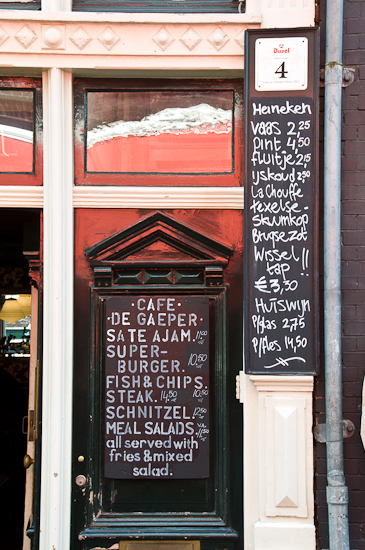 Duvel
4
Heineken
vaas 2,25
pint 4,50
fluitje 2,15
ijskoud 2,25
La Chouffe
texelse-
skuumkop
Brugsezot
Wissel
tap !!
€3,30
Huiswijn
P/glas 2,75
P/fles 14,50
·CAFE·
DE GAEPER.
SATE AJAM. 11,00
SUPER-
BURGER. 10,50
FISH & CHIPS. 10,50
STEAK. 14,50
SCHNITZEL. 12,50
MEAL SALADS. V.A.
all served with
fries & mixed
salad.